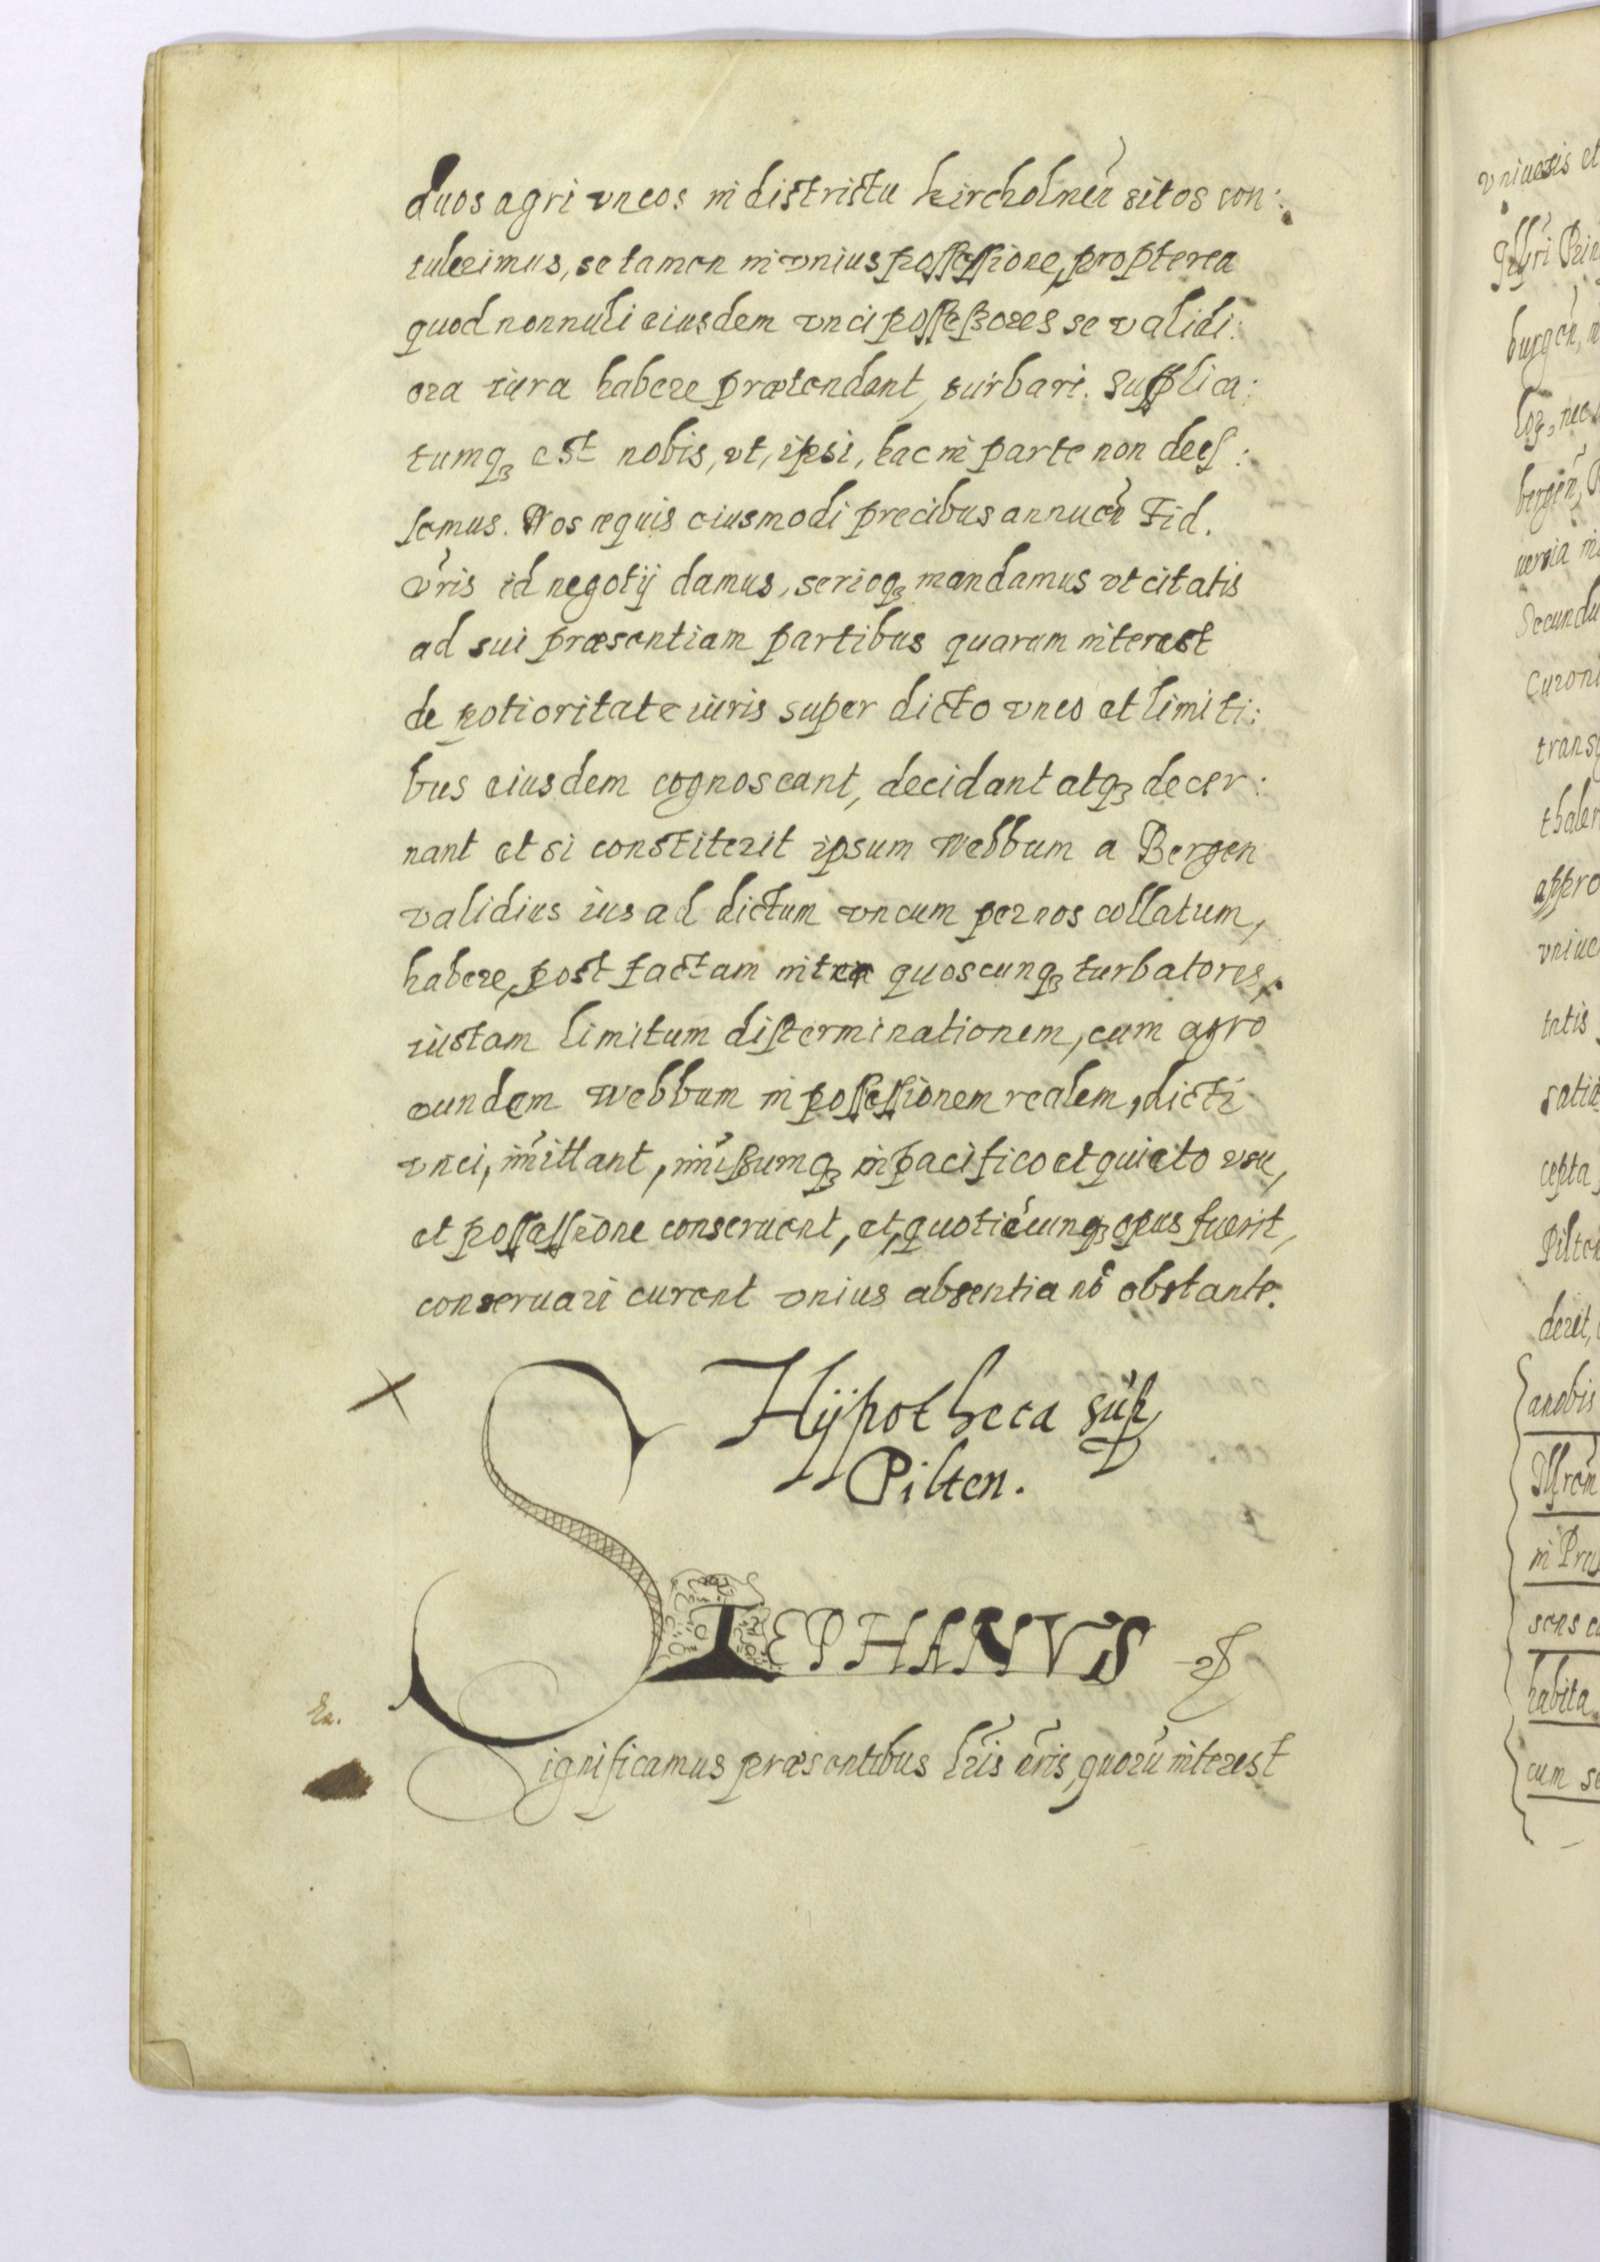 duos agri vncos in districtu kircholmen̄ sitos con:
tulerimus, se tamen in vnius possessione, propterea
quod nonnulli eiusdem vnci possessores se validi:
ora iura habere prætendant, turbari. Supplica:
tumqꝫ est nobis, vt, ipsi, hac in parte non dees:
semus. Nos æquis eiusmodi precibus annuen̄ Fid.
vr̄is id negotij damus, serioqꝫ mandamus vt citatis
ad sui præsentiam partibus quarum interest
de potioritate iuris super dicto vnco et limiti:
bus eiusdem cognoscant, decidant atqꝫ decer:
nant et si constiterit ipsum Webbum a Bergen
validius ius ad dictum vncum per nos collatum,
habere, post factam inter quoscunqꝫ turbatores,
iustam limitum disterminationem, cum agro
eundem Webbum in possessionem realem, dicti
vnci, im̄ittant, im̄issumqꝫ in pacifico et quieto vsu,
et possessione conseruent, et, quotiēcunqꝫ opus fuerit,
conseruari curent vnius absentia nō obstante.
Hÿpotheca sup̄
Pilten.
STEPHANVS
Significamus præsentibus lr̄is nr̄is, quorū interest
vniuersis et
burgen̄,
bergen̄,
Secundu
Curoni
trans
thalen
appro
vniue
tatis
satia
cepta,
Pilten
deret,
anobis
in Prus
sens
habita
cum se